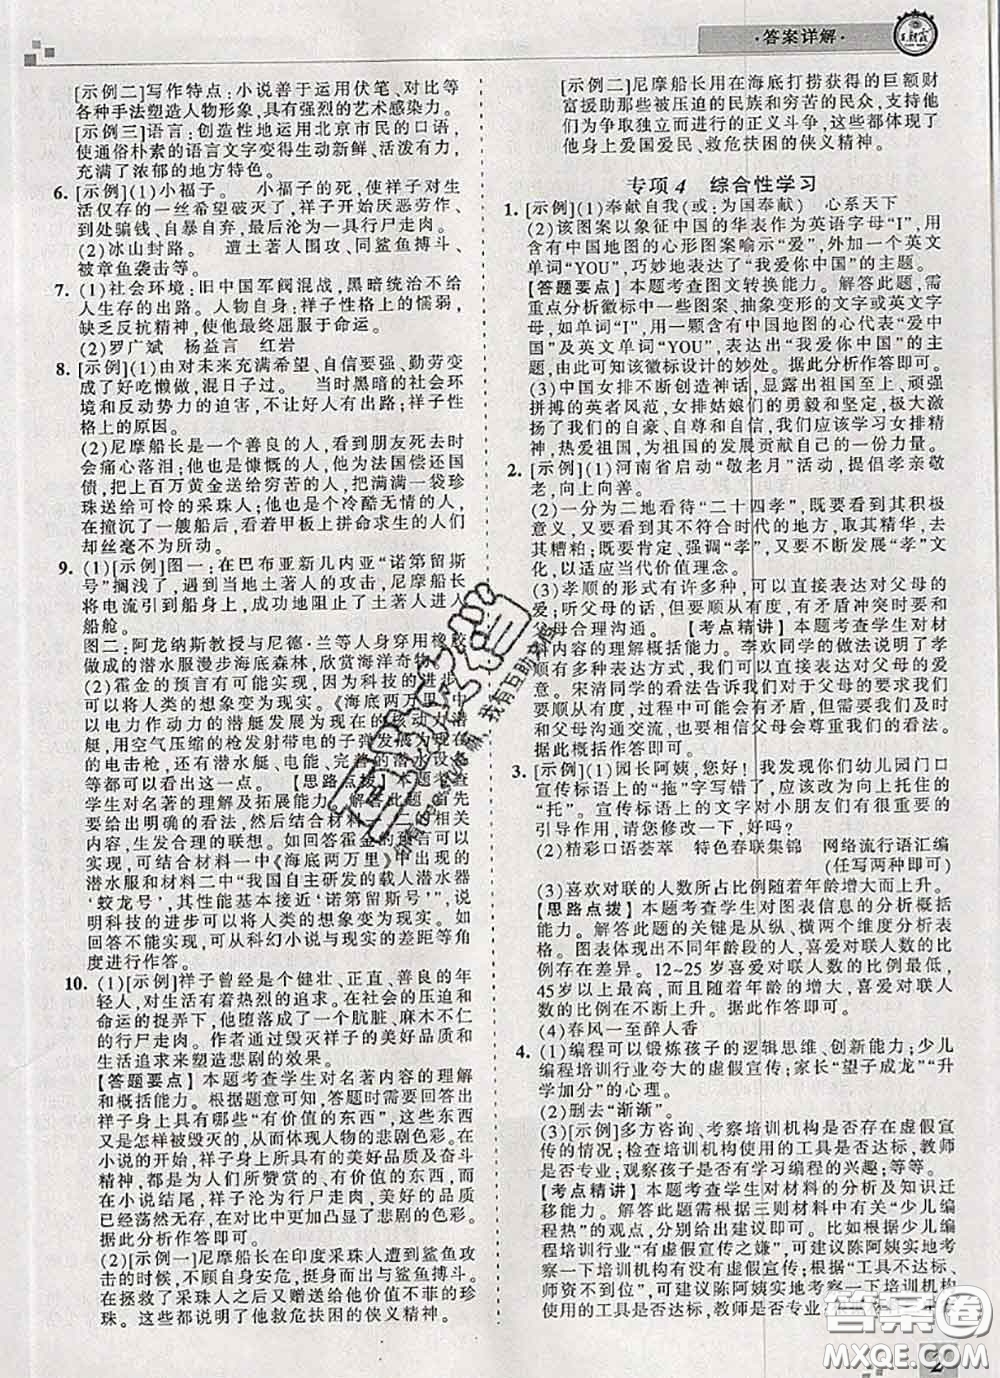 ·答案详解·
[示例二]写作特点:小说善于运用伏笔、对比等
各种手法塑造人物形象,具有强烈的艺术感染力。
[示例三]语言:创造性地运用北京市民的口语,
使通俗朴素的语言文字变得生动新鲜、活泼有力,
充满了浓郁的地方特色。
6. [示例](1)小福子。 小福子的死,使祥子对生
活仅存的一丝希望破灭了,祥子开始厌恶劳作、
到处骗钱、自暴自弃,最后沦为一具行尸走肉。
(2)冰山封路。 遭土著人围攻、同鲨鱼搏斗、
被章鱼袭击等。
7. (1)社会环境:旧中国军阀混战,黑暗统治不给
人生存的出路。人物自身:祥子性格上的懦弱,
缺乏反抗精神,使他最终屈服于命运。
(2)罗广斌 杨益言 红岩
8. (1)由对未来充满希望、自信要强、勤劳变
成了好吃懒做,混日子过。 当时黑暗的社会环
境和反动势力的迫害,不让好人有出路;祥子性格
上的原因。
(2)尼摩船长是一个善良的人,看到朋友死去会
痛心落泪;他也是慷慨的人,他为法国偿还国
债,把上百万黄金送给穷苦的人,把满满一袋珍
珠送给可怜的采珠人;他也是个冷酷无情的人,
在撞沉了一艘船后,看着甲板上拼命求生的人们
却丝毫不为所动。
9. (1)[示例]图一:在巴布亚新几内亚“诺第留斯
号”搁浅了,遇到当地土著人的攻击,尼摩船长
将电流引到船身上,成功地阻止了土著人进入
船舱。
图二:阿龙纳斯教授与尼德·兰等人身穿用橡胶
做成的潜水服漫步海底森林,欣赏海洋奇物。
(2)霍金的预言有可能实现,因为科技的进步可
以将人类的想象变为现实。《海底两万里》中
以电力作动力的潜艇,发展为现在的核动力潜
艇,用空气压缩的枪发射带电的子弹发展为现在
的电击枪,还有潜水艇、电能、完善的潜水设备
等都可以看出这一点。 【思路点拨】本题考查
学生对名著的理解及拓展能力。解答此题,首先
要给出明确的看法,然后结合材料
生发合理的联想。如回答霍金的预言可能
实现,可结合材料一中《海底两万里》中出现的
潜水服和材料二中“我国自主研发的载人潜水器
‘蛟龙号’,其性能基本接近‘诺第留斯号’”,说
明科技的进步可以将人类的想象变为现实。如
回答不能实现,可从科幻小说与现实的差距等角
度进行作答。
10. (1)[示例]祥子曾经是个健壮、正直、善良的年
轻人,对生活有着热烈的追求。在社会的压迫和
命运的捉弄下,他堕落成了一个肮脏、麻木不仁
的行尸走肉。作者通过毁灭祥子的美好品质和
生活追求来塑造悲剧的效果。
【答题要点】本题考查学生对名著内容的理解
和概括能力。根据题意可知,答题时需要回答出
祥子身上具有哪些“有价值的东西”,这些东西
又是怎样被毁灭的,从而体现人物的悲剧色彩。在
小说的开始,祥子身上具有的优秀品质以及奋斗
精神,都是为人们所赞赏的、有价值的东西,而
在小说结尾,祥子沦为行尸走肉,美好的品质
已经荡然无存,在对比中更加凸显了悲剧的色彩。
据此分析作答即可。
(2)[示例一]尼摩船长在印度采珠人遭到鲨鱼攻
击的时候,不顾自身安危,挺身而出与鲨鱼搏斗。
在拯救了采珠人之后又赠送给他价值不菲的珍
珠。这都说明了他救危扶困的侠义精神。
[示例二]尼摩船长用在海底打捞获得的巨额财
富援助那些被压迫的民族和穷苦的民众,支持他
们为争取独立而进行的正义斗争,这些都体现了
他身上爱国爱民、救危扶困的侠义精神。
专项4 综合性学习
1. [示例](1)奉献自我(或:为国奉献) 心系天下
(2)该图案以象征中国的华表作为英语字母“I”,用
含有中国地图的心形图案喻示“爱”,外加一个英文
单词“YOU”,巧妙地表达了“我爱你中国”的主题。
【答题要点】本题考查图文转换能力。解答此题,需
重点分析徽标中一些图案、抽象变形的文字或英文字
母,如单词“I”、含有中国地图的心代表“爱中
国”及英文单词“YOU”,表达出“我爱你中国”的主
题,由此可知该徽标设计的妙处。据此分析作答即可。
(3)中国女排不断创造神话,显露出祖国至上、顽强
拼搏的英者风范,女排姑娘们的勇毅和坚定,极大激
扬了我们的自豪、自尊和自信,我们应该学习女排精
神,热爱祖国,为祖国的发展贡献自己的一份力量。
2. [示例](1)河南省启动“敬老月”活动,提倡孝亲敬
老,向上向善。
(2)一分为二地看待“二十四孝”,既要看到其积极
意义,又要看到其不符合时代的地方,取其精华,去
其糟粕;既要肯定、强调“孝”,又要不断发展“孝”文
化,以适应当代价值理念。
(3)孝顺的形式有许多种,可以直接表达对父母的
爱;听父母的话也是一种孝,若有矛盾冲突时要和
父母合理沟通。 【考点精讲】本题考查学生对材
料内容的理解概括能力。李欢同学的做法说明了孝
顺有多种表达方式,我们可以直接表达对父母的爱。
宋清同学的看法告诉我们对于父母的要求我们要尽
可能满足,过程中可能会有矛盾,这时候需要我们
和父母沟通交流,也要相信父母会尊重我们的看法。
据此概括作答即可。
3. [示例](1)园长阿姨,您好!我发现你们幼儿园门口
宣传标语上的“拖”字写错了,应该改为托住的
“托”。宣传标语上的文字对小朋友们有很重要的
引导作用,请您修改一下,好吗?
(2)精彩口语荟萃 特色春联集锦 网络流行语汇编
(任写两种即可)
(3)喜欢对联的人数所占比例随着年龄增大而上升。
【思路点拨】本题考查学生对图表信息的分析概括
能力。解答此题的关键是从纵、横两个维度分析表
格。图表体现出不同年龄段的人,喜爱对联人数的比
例存在差异。12~25岁喜爱对联人数的比例最低,
45岁以上最高,说明随着年龄的增大,喜爱对联人
数的比例在不断上升。据此作答即可。
(4)春风一至醉人香
4. (1)编程可以锻炼孩子的逻辑思维、创新能力;少儿
编程培训行业夸大的虚假宣传;家长“望子成龙”“升
学加分”的心理。
(2)删去“渐渐”。
(3)[示例]多方咨询、考察培训机构是否存在虚假宣
传的情况;检查培训机构使用的工具是否达标,教师
是否专业;观察孩子是否有学习编程的兴趣;等等。
【考点精讲】本题考查学生对材料的分析及知识迁
移能力。解答此题需根据三则材料中有关“少儿编
程热”的观点,分别给出建议即可。比如根据少儿编
程培训行业“有虚假宣传之嫌”,可建议陈阿姨实地考
察一下培训机构有没有虚假宣传;根据“工具不达标、
师资不到位”,可建议陈阿姨实地考察一下培训机构
使用的工具是否达标,教师是否专业
2
答案圈
MXQE.COM